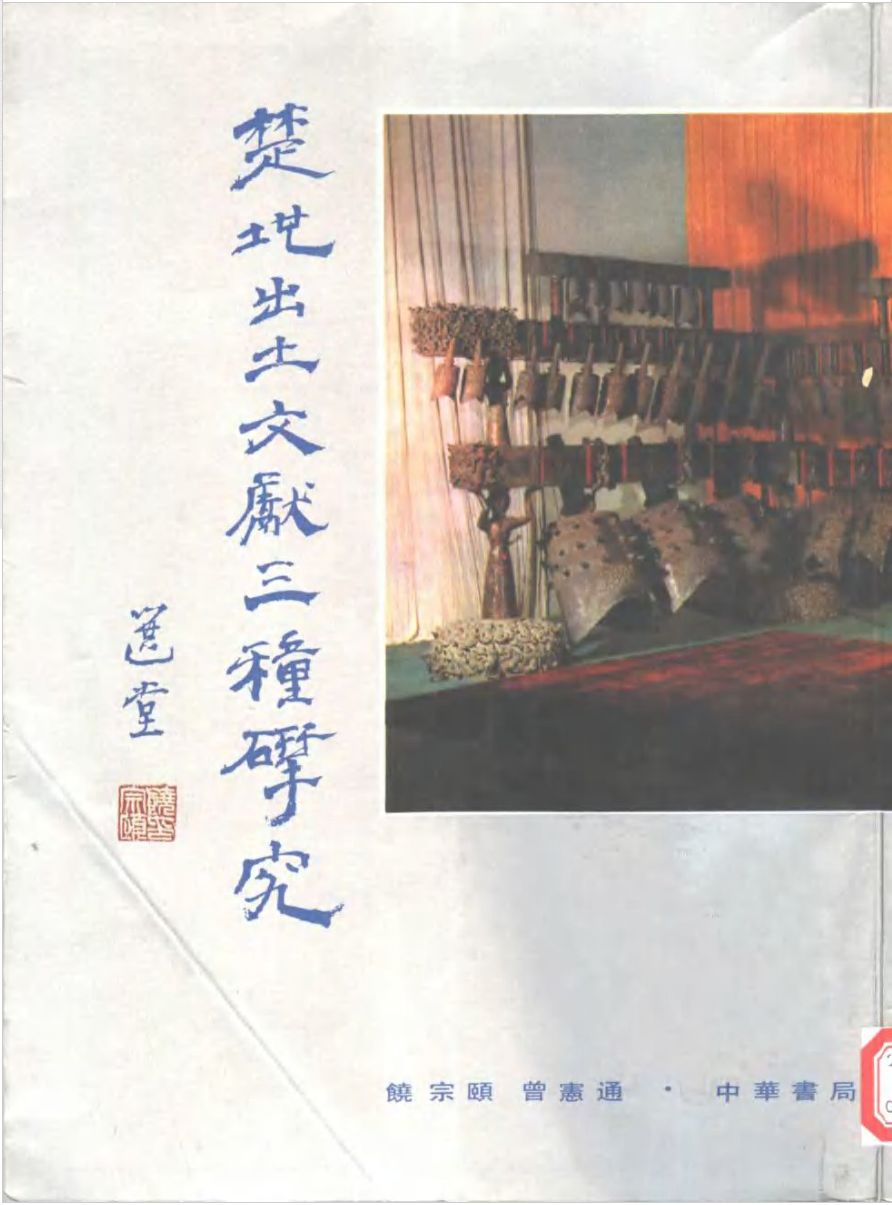 楚地出土文獻三種研究
選堂
饒宗頤 曾憲通 · 中華書局